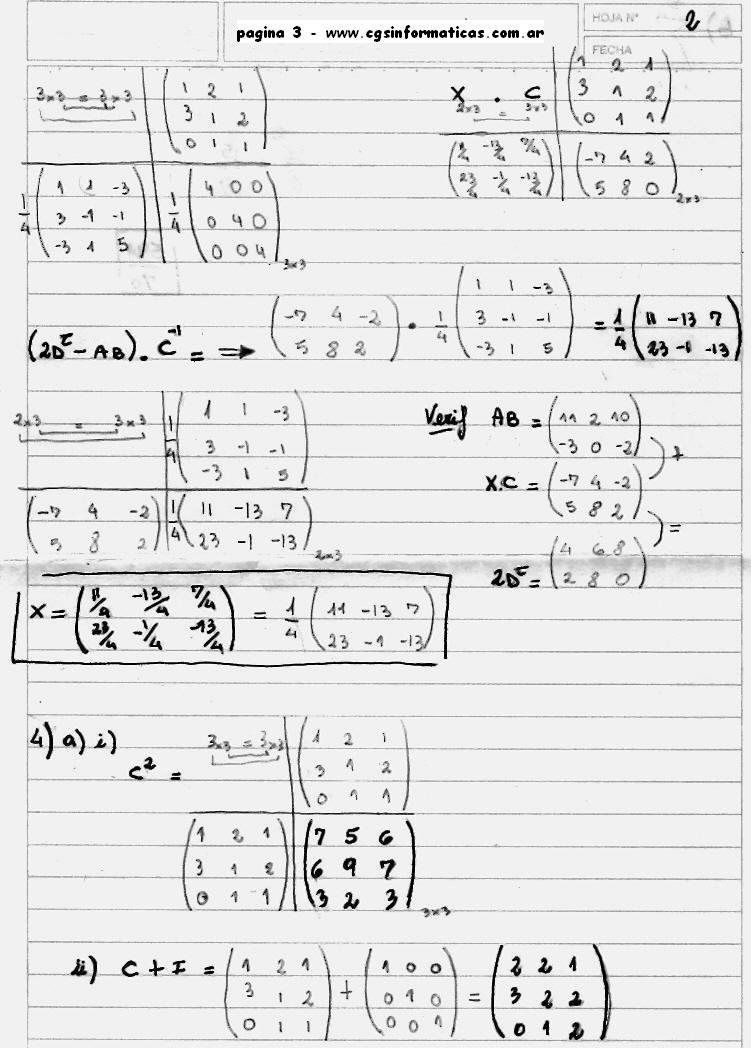 pagina 3 - www.cgsinformaticas.com.ar
HOJA N° 2
FECHA
3x3 = 3x3
1 2 1
3 1 2
0 1 1
1/4 (1 1 -3
3 -1 -1
-3 1 5)
1/4 (4 0 0
0 4 0
0 0 4) 3x3
X . C
2x3 = 3x3
1 2 1
3 1 2
0 1 1
11/4 -13/4 7/4
23/4 -1/4 -13/4
-7 4 2
5 8 0 2x3
(2Dᵗ - AB) . C⁻¹ = ⇒
(-7 4 -2
5 8 2)
• 1/4 (1 1 -3
3 -1 -1
-3 1 5)
= 1/4 (11 -13 7
23 -1 -13)
2x3 = 3x3
1/4 (1 1 -3
3 -1 -1
-3 1 5)
(-7 4 -2
5 8 2)
1/4 (11 -13 7
23 -1 -13) 2x3
Verif AB = (11 2 10
-3 0 -2) +
X.C = (-7 4 -2
5 8 2) =
2Dᵗ = (4 6 8
2 8 0)
X = (11/4 -13/4 7/4
23/4 -1/4 -13/4)
= 1/4 (11 -13 7
23 -1 -13)
4) a) i)
C² =
3x3 = 3x3
1 2 1
3 1 2
0 1 1
(1 2 1
3 1 2
0 1 1)
(7 5 6
6 9 7
3 2 3) 3x3
ii) C + I = (1 2 1
3 1 2
0 1 1)
+ (1 0 0
0 1 0
0 0 1)
= (2 2 1
3 2 2
0 1 2)